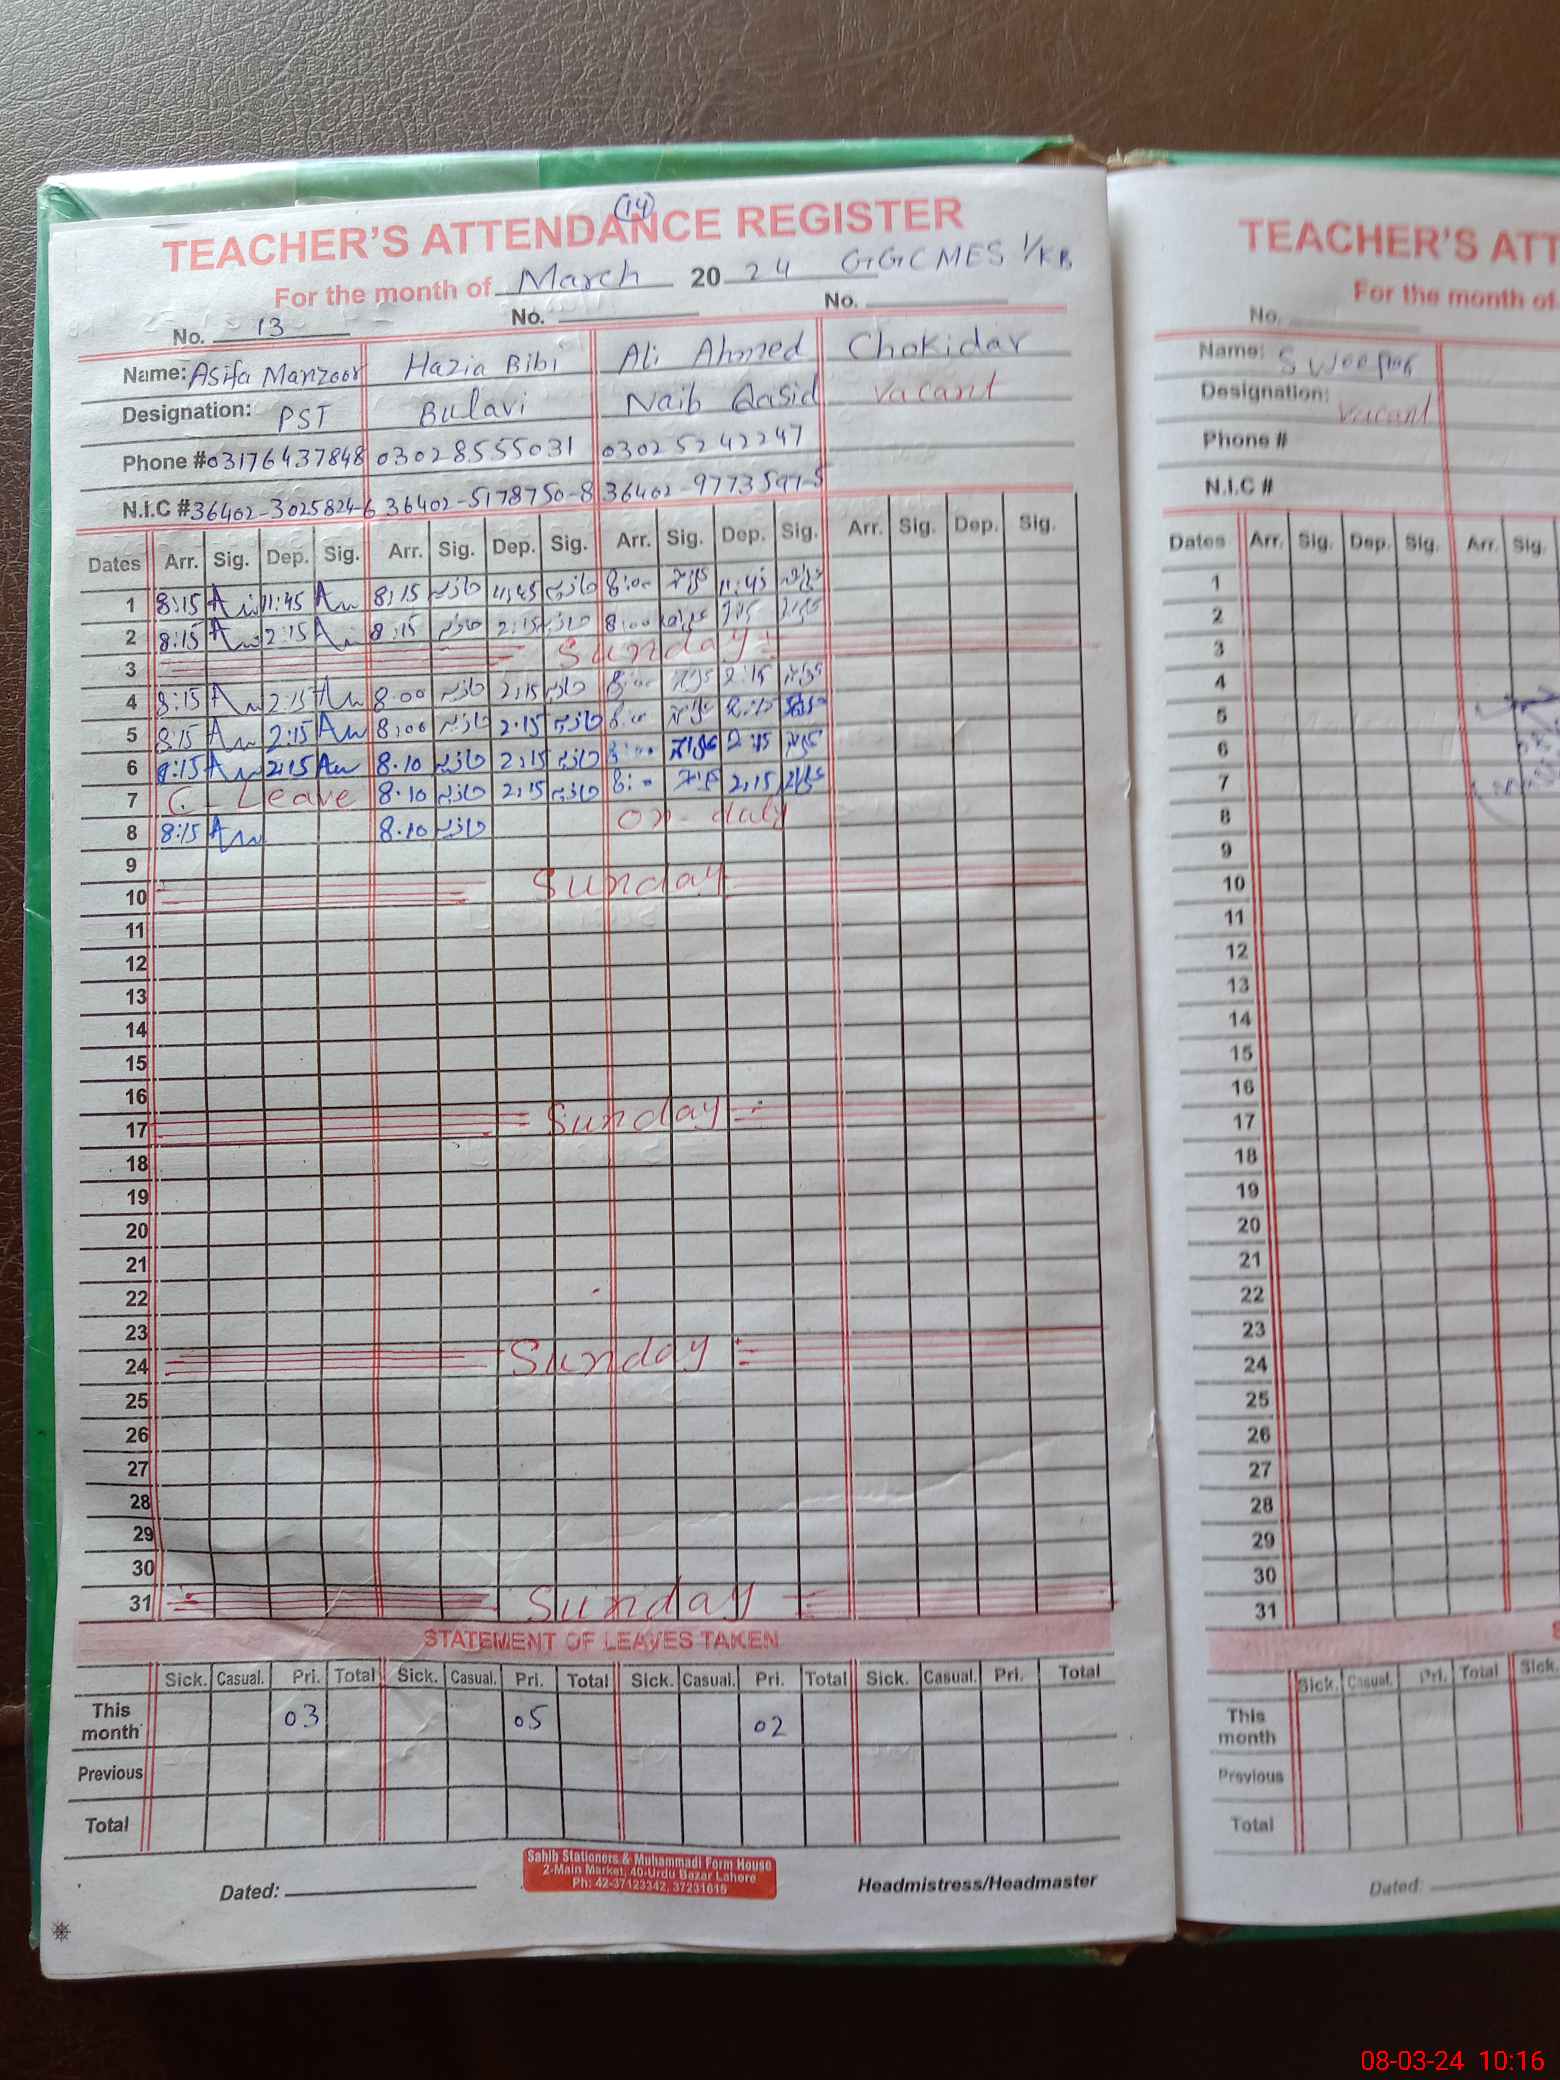 (14)
TEACHER'S ATTENDANCE REGISTER
For the month of March 2024 GGCMES 1/KB
No. 13 No. No.
Name: Asifa Manzoor Hazia Bibi Ali Ahmed Chokidar
Designation: PST Bulavi Naib Qasid Vacant
Phone # 03176437848 03028555031 03025242247
N.I.C # 36402-3025824-6 36402-5178750-8 36402-9773597-5
Dates Arr. Sig. Dep. Sig. Arr. Sig. Dep. Sig. Arr. Sig. Dep. Sig. Arr. Sig. Dep. Sig.
1 8:15 11:45 8:15 11:45 8:00 11:45
2 8:15 2:15 8:15 2:15 8:00 2:15
3 Sunday
4 8:15 2:15 8.00 2:15 8:00 2:15
5 8:15 2:15 8:00 2:15 8:00 2:15
6 8:15 2:15 8.10 2:15 8:00 2:15
7 C-Leave 8.10 2:15 8:00 2:15
8 8:15 8.10 on-duty
9
10 Sunday
11
12
13
14
15
16
17 Sunday
18
19
20
21
22
23
24 Sunday
25
26
27
28
29
30
31 Sunday
STATEMENT OF LEAVES TAKEN
Sick. Casual. Pri. Total Sick. Casual. Pri. Total Sick. Casual. Pri. Total Sick. Casual. Pri. Total
This month 03 05 02
Previous
Total
Dated:
Sahib Stationers & Muhammadi Form House
2-Main Market, 40-Urdu Bazar Lahore
Ph: 42-37123342, 37231615
Headmistress/Headmaster
TEACHER'S ATT
For the month of
No.
Name: Sweeper
Designation: Vacant
Phone #
N.I.C #
Dates Arr. Sig. Dep. Sig. Arr. Sig.
1
2
3
4
5
6
7
8
9
10
11
12
13
14
15
16
17
18
19
20
21
22
23
24
25
26
27
28
29
30
31
Sick. Casual. Pri. Total Sick.
This month
Previous
Total
Dated:
08-03-24 10:16